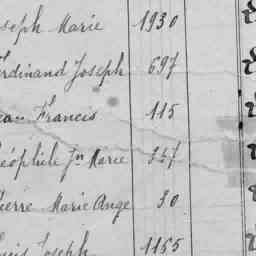 oseph Marie 1930
Ferdinand Joseph 697
ean Francis 115
éophile Jn Marie 357
Pierre Marie Ange 30
ouis Joseph 1155